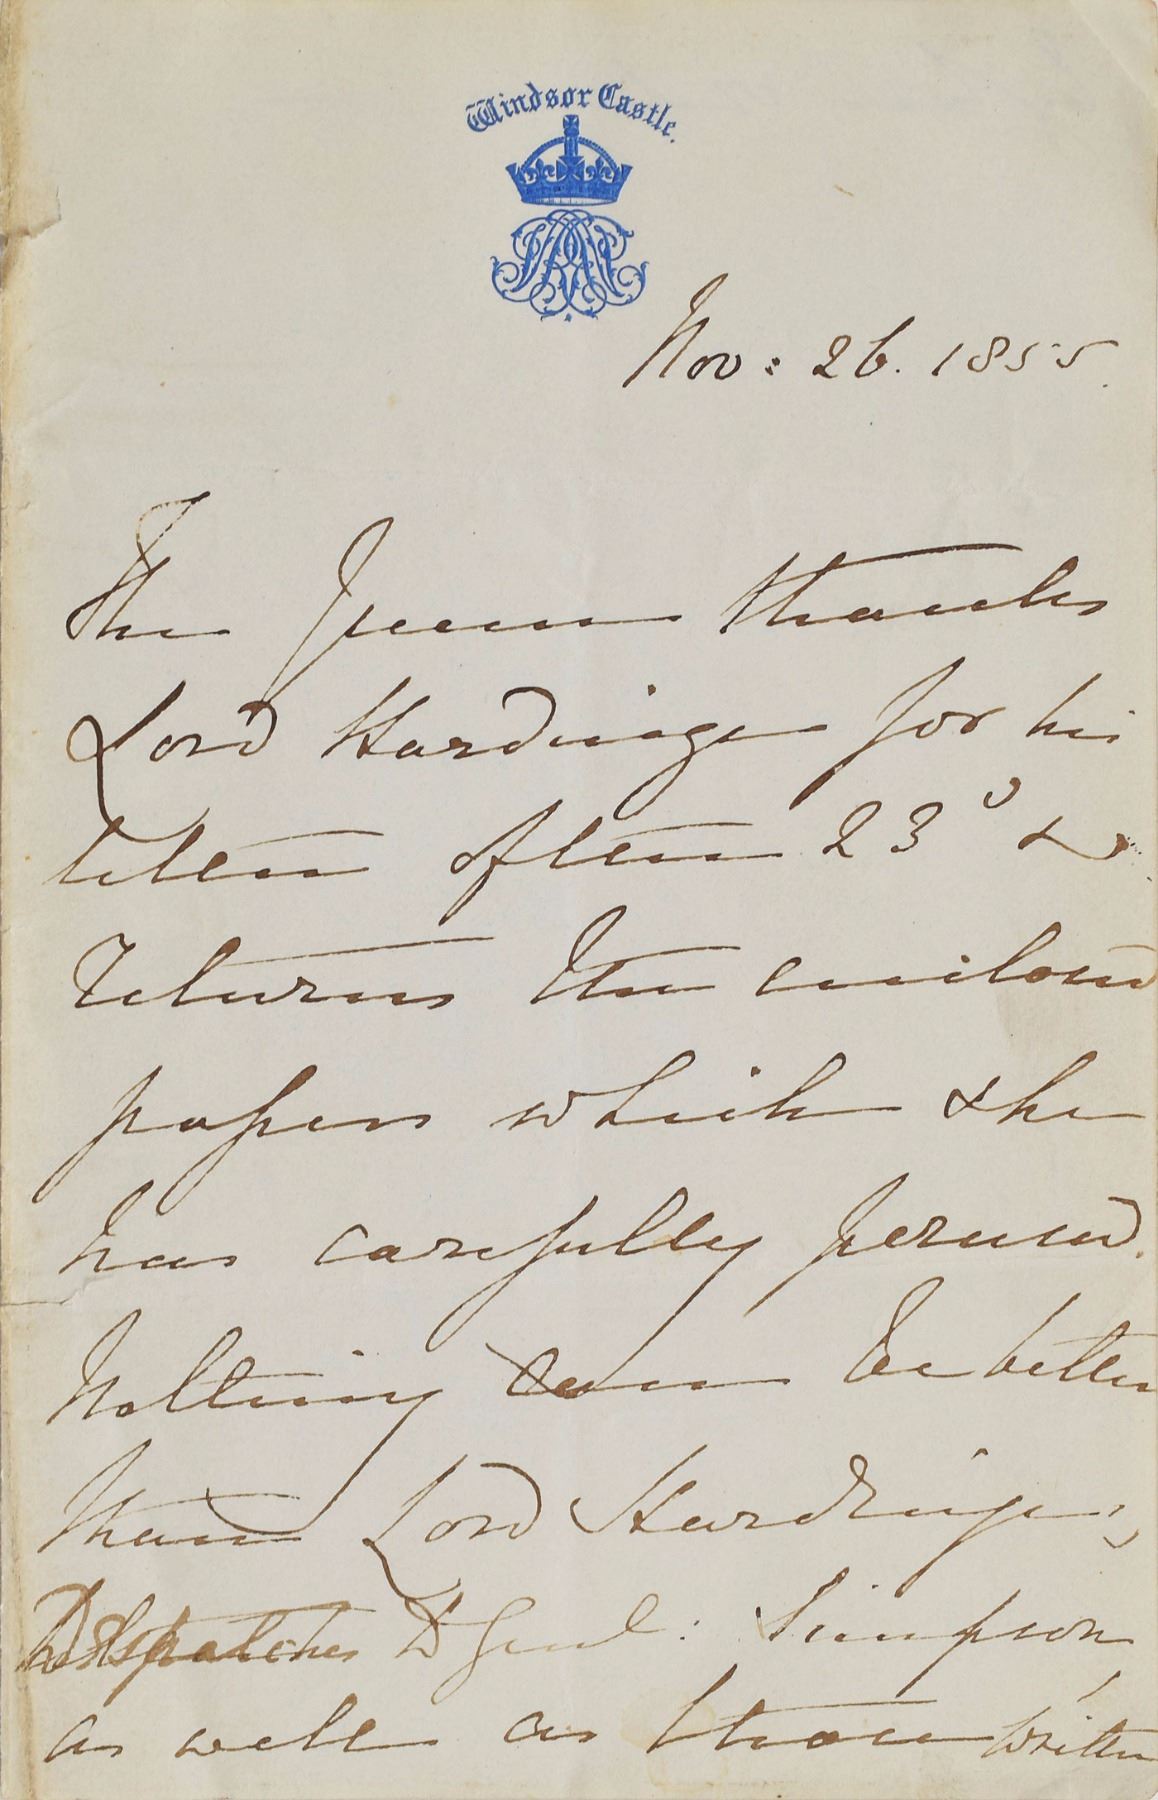 Windsor Castle.
Nov: 26. 1855.
The Queen thanks
Lord Hardinge for his
letter of the 23d &
returns the enclosed
papers which she
has carefully perused.
Nothing can be better
than Lord Hardinge's
Despatches to Genl: Simpson
as well as those written